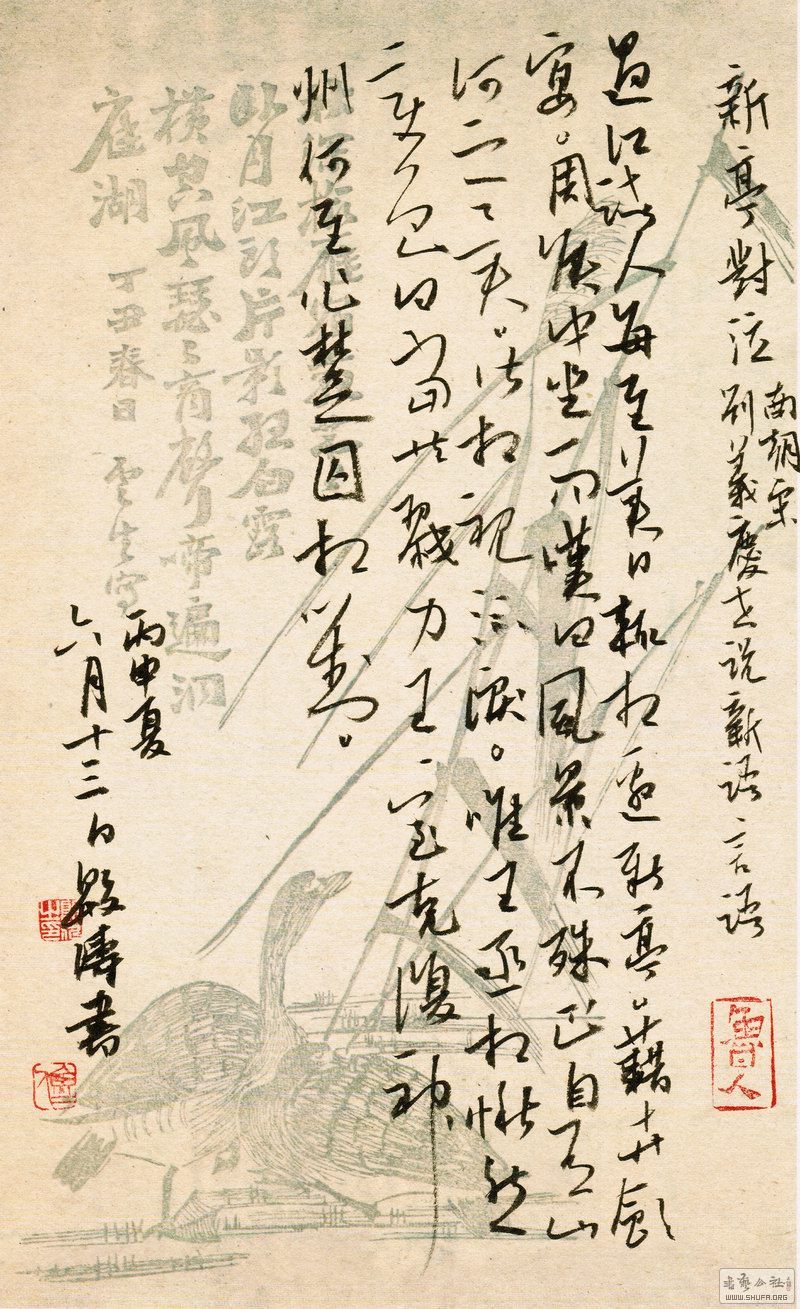 新亭對泣 南朝宋 劉義慶世說新語言語
魯人
過江諸人每至美日輒相邀新亭藉卉飲
宴。周侯中坐而嘆曰風景不殊正自有山
河之異皆相視流淚。唯王丞相愀然
變色曰當共戮力王室克復神
州何至作楚囚相對。
丙申夏
六月十三日殷濤書
臥月江頭片影孤白露
橫空風瑟瑟聲啼遍泗
雁湖 丁丑春日
書藝公社
WWW.SHUFA.ORG